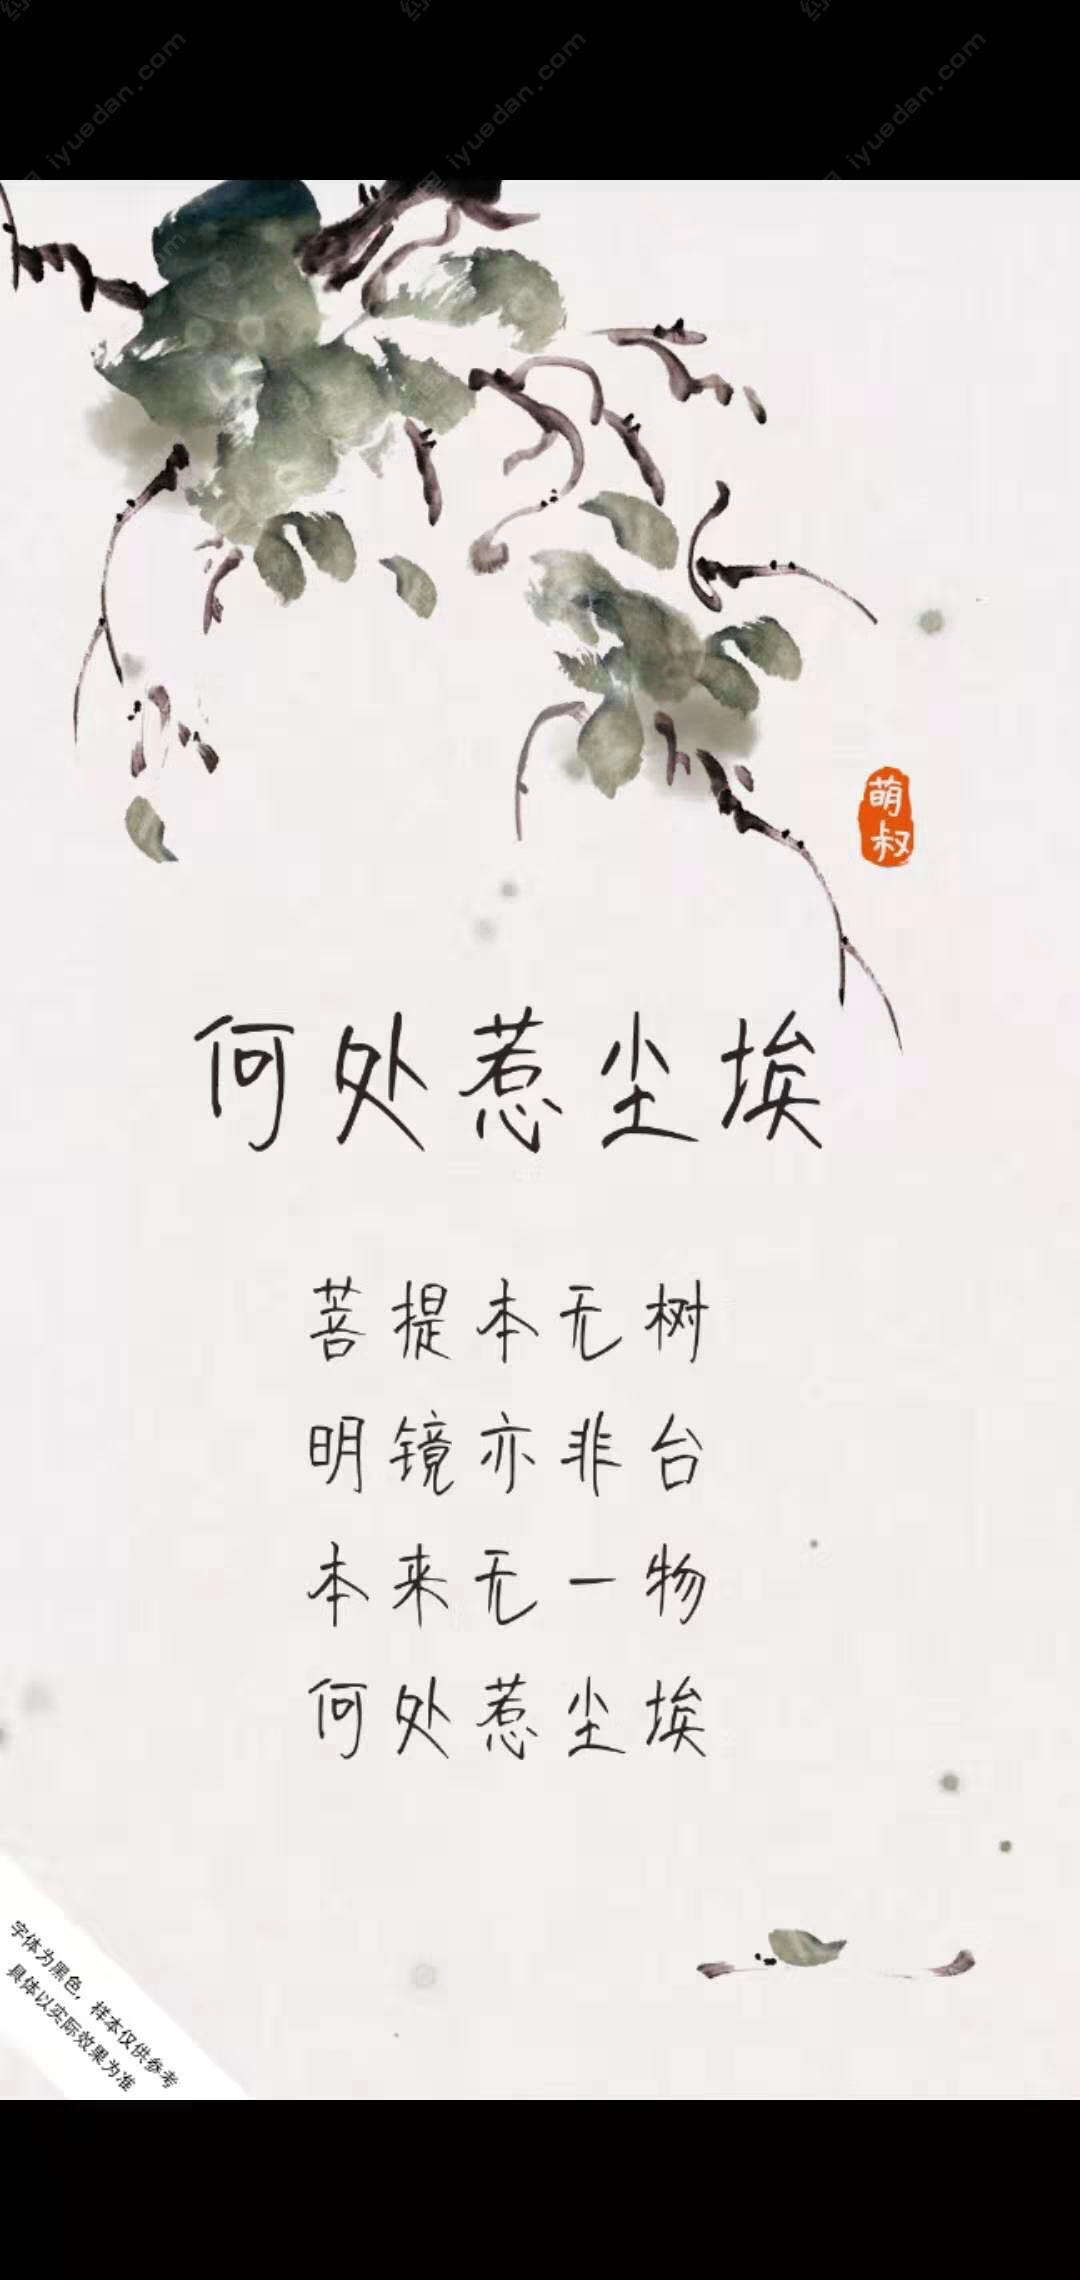 iyuedan.com iyuedan.com iyuedan.com
萌叔
何处惹尘埃
菩提本无树
明镜亦非台
本来无一物
何处惹尘埃
字体为黑色，样本仅供参考
具体以实际效果为准